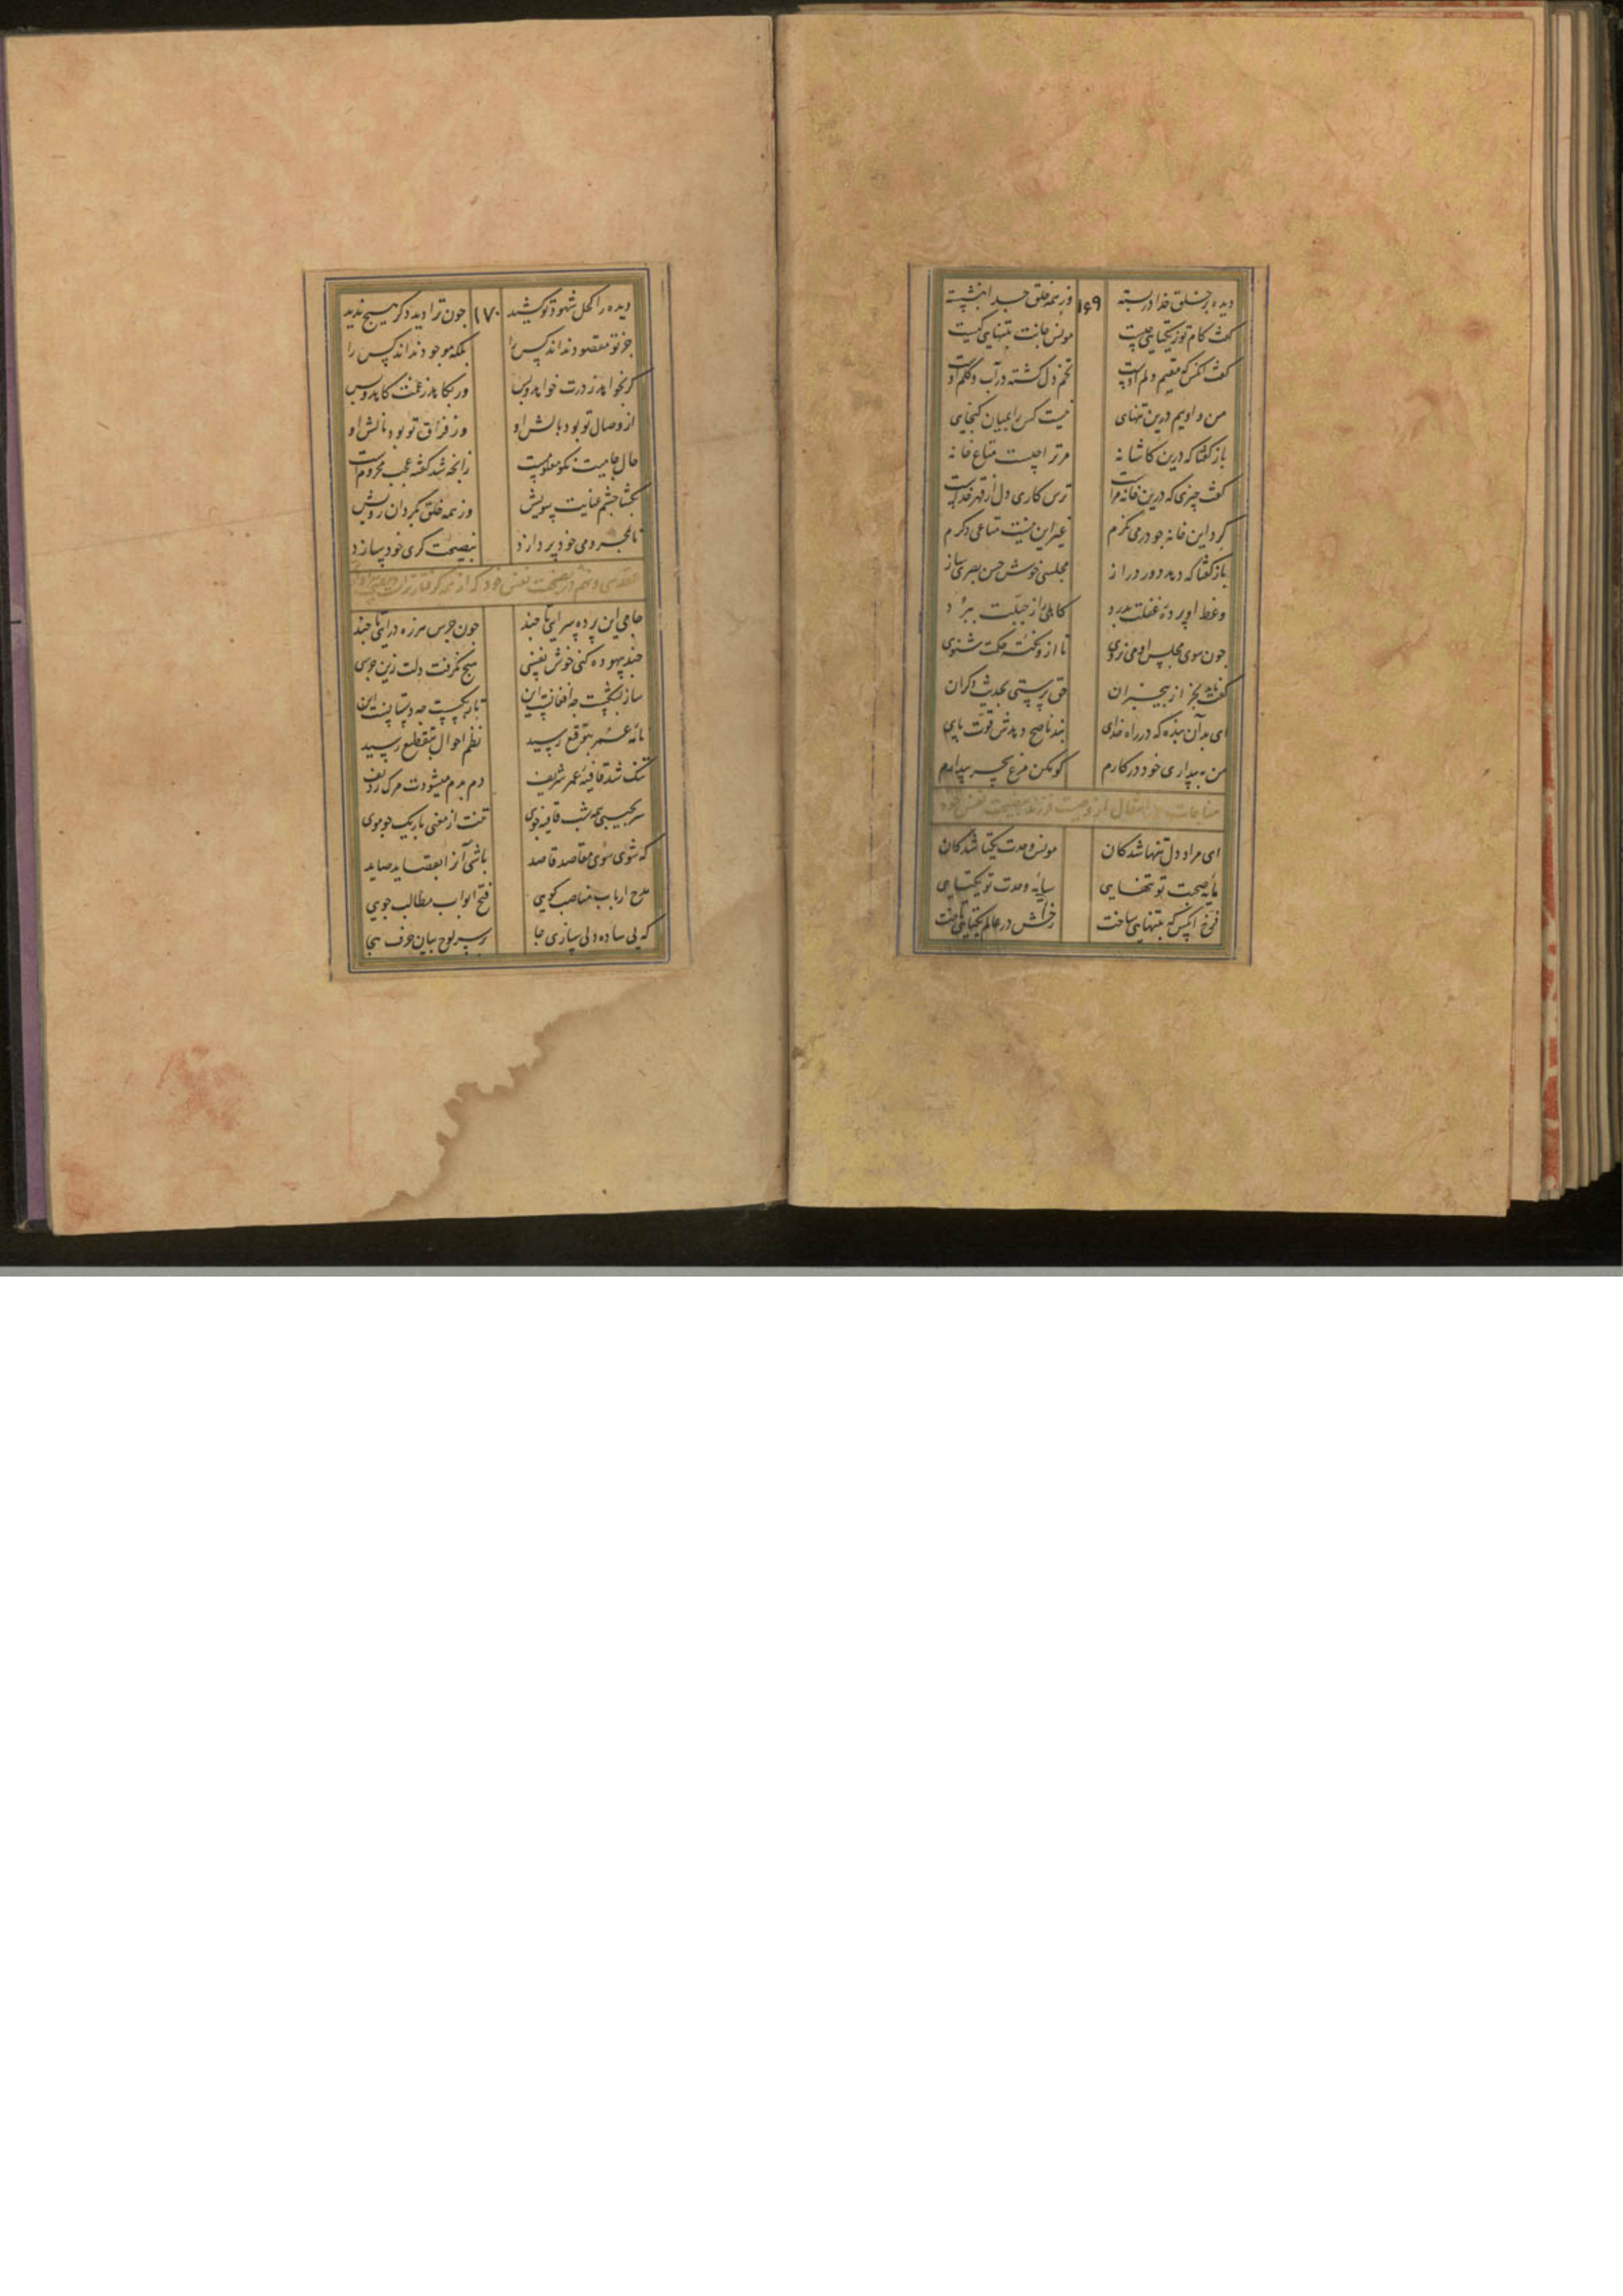 ۱۶۹
دیده بر خلق خدا در بسته وز همه خلق جدا بنشسته
گفت کام تو ز یکتایی چیست مونس جانت بتنهایی کیست
گفت آنکس که مقیم دلم اوست تخم دل کشته در آب و گلم اوست
من و اویم درین تنهای نیست کس را بمیان گنجایی
باز گفتا که درین کاشانه مر ترا چیست متاع خانه
گفت چیزی که درین خانه مراست ترس کاری دل از قهر خداست
گرد این خانه جو در می نگرم غیر این نیست متاعی دگرم
باز گفتا که دهد دور دراز مجلسی خوش حسن بصری ساز
وعظ او پرده غفلت بدرد کاهلی از جبلت ببرد
جون سوی مجلس او می نروی تا ازو نکته حکمت شنوی
گفت ناید بجز از بیخبران حق پرستی بحدیث دگران
ای بد آن بنده که در راه خدای پند ناصح دهدش قوت پای
من به بیداری خود در کارم کو مکن مرغ سحر بیدارم
مناجات در انتقال از وصیت فرزند بنصیحت نفس خود
ای مراد دل تنها شدکان مونس وحدت یکتا شدکان
مایه صحبت تو تنهایی سایه وحدت تو یکتایی
فرخ آنکس که بتنهایی ساخت رخش در عالم یکتایی تاخت
۱۷۰
دیده را کحل شهود تو کشید جون ترا دید دکر هیچ ندید
جز تو مقصود نداند کس را بلکه موجود نداند کس را
گر بخواند ز درت خواند و بس ور بکاهد ز غمت کاهد و بس
از وصال تو بود بالش او وز فراق تو بود نالش او
حال جامیت نکو معلومست زانجه شد گفته عجب محرومست
بگشا چشم عنایت سویش وز همه خلق بگردان رویش
تا بمحرومی خود پردازد نصیحت گری خود سازد
عقد سی و نهم در نصیحت نفس خود که از همه گرفتارترست
جامی این پرده سرایی تا جند جون جرس هرزه درایی تا جند
جند بیهوده کنی خوش نفسی هیج نگرفت دلت زین جرسی
ساز بشکست جه افغانست این تار بگسست جه دستانست این
نامه عمر بتوقیع رسید نظم احوال بتقطیع رسید
تنگ شد قافیه عمر شریف دم بدم میشودت مرک ردیف
سر بجیبی همه شب قافیه جوی تنت از معنی باریک جو موی
که شوی سوی مقاصد قاصد باشی آنرا بقصاید صاید
مدح ارباب مناصب گویی فتح ابواب مطالب جویی
که پی ساده دلی سازی جا بر سر لوح بیان حرف هجا